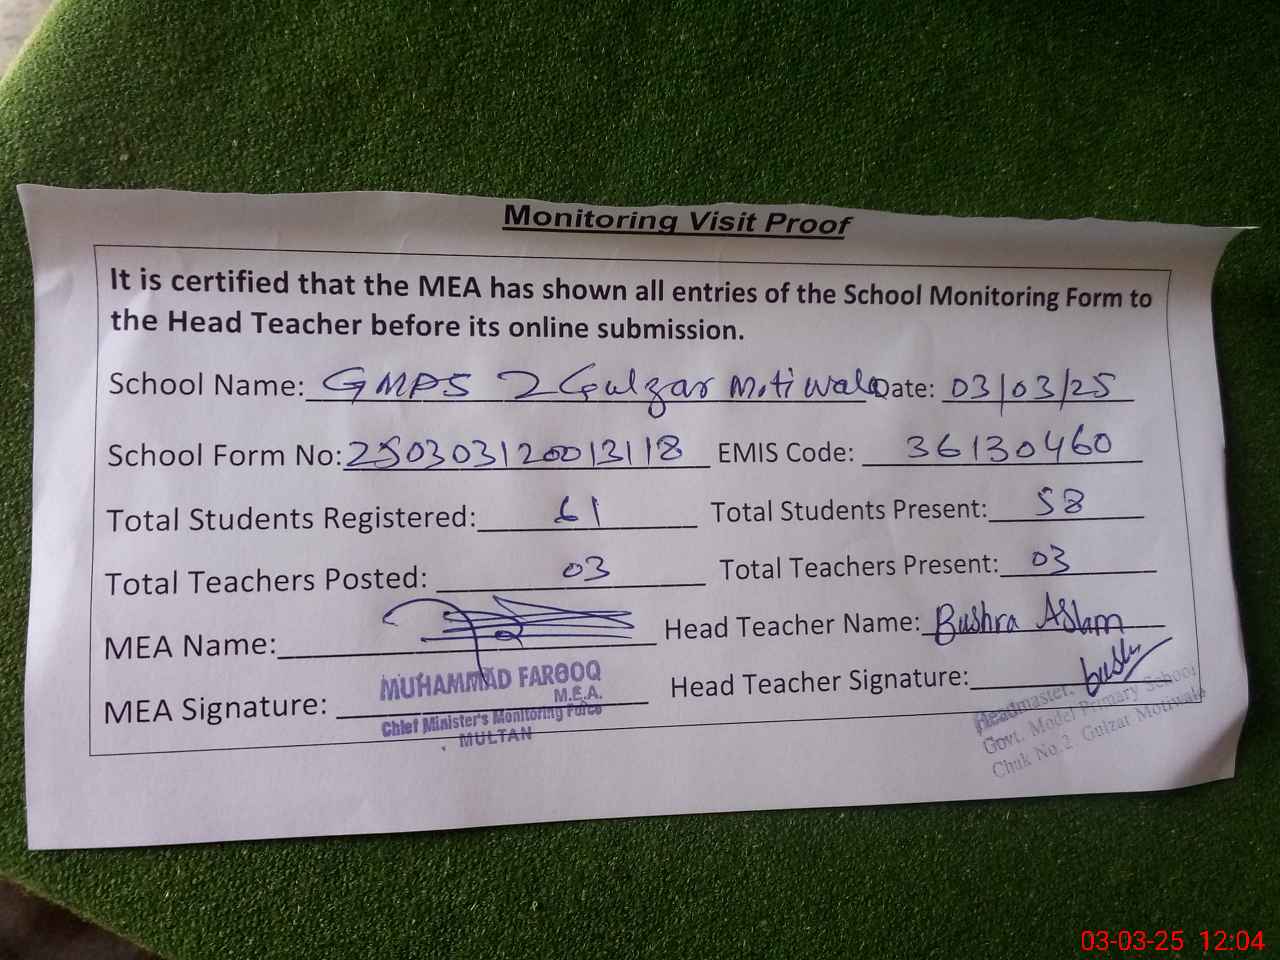 Monitoring Visit Proof
It is certified that the MEA has shown all entries of the School Monitoring Form to
the Head Teacher before its online submission.
School Name: GMPS 2 Gulzar Motiwala Date: 03/03/25
School Form No: 250303120013118 EMIS Code: 36130460
Total Students Registered: 61 Total Students Present: 58
Total Teachers Posted: 03 Total Teachers Present: 03
MEA Name: Head Teacher Name: Bushra Aslam
MEA Signature: Head Teacher Signature:
MUHAMMAD FAROOQ
M.E.A.
Chief Minister's Monitoring Force
MULTAN
Headmaster,
Govt. Model Primary School
Chak No.2 Gulzar Motiwala
03-03-25 12:04